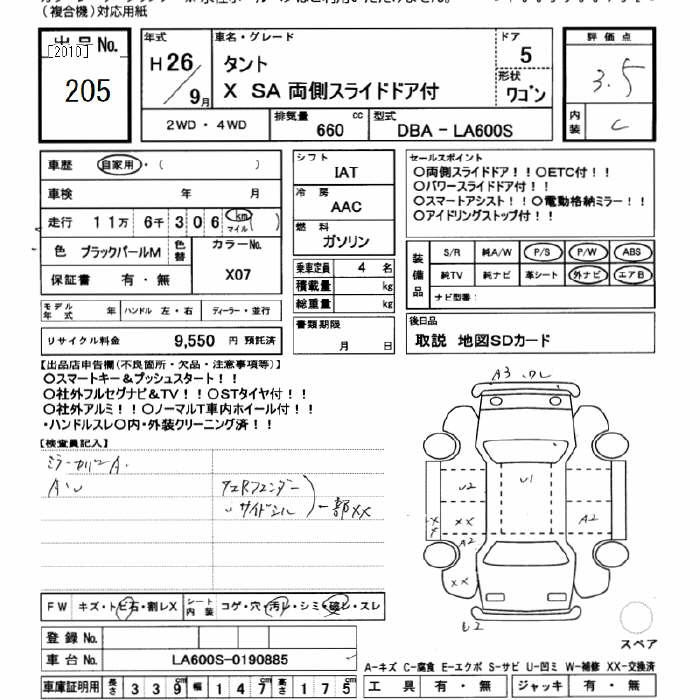 （複合機）対応用紙
出品No.
[2010]
205
年式
H26/9月
車名・グレード
タント
X SA 両側スライドドア付
ドア
5
形状
ワゴン
評価点
3.5
内装
C
2WD・4WD
排気量
660 cc
型式
DBA - LA600S
車歴 自家用・( )
車検 年 月
走行 11万 6千 306 km マイル ( )
色 ブラックパールM 色替 カラーNo.
保証書 有・無 X07
シフト
IAT
冷房
AAC
燃料
ガソリン
乗車定員 4 名
積載量 kg
総重量 kg
書類期限
月 日
セールスポイント
○両側スライドドア！！○ETC付！！
○パワースライドドア付！！
○スマートアシスト！！○電動格納ミラー！！
○アイドリングストップ付！！
装備品
S/R 純A/W P/S P/W ABS
純TV 純ナビ 革シート 外ナビ エアB
ナビ型番：
後日品
取説 地図SDカード
モデル年式 年 ハンドル 左・右 ディーラー・並行
リサイクル料金 9,550 円 預託済
【出品店申告欄(不良箇所・欠品・注意事項等)】
○スマートキー＆プッシュスタート！！
○社外フルセグナビ＆TV！！○STタイヤ付！！
○社外アルミ！！○ノーマルT車内ホイール付！！
・ハンドルスレ○内・外装クリーニング済！！
【検査員記入】
ミラーカバーA.
A.U
左Rフェンダー
〃 サイドシル
一部XX
FW キズ・トビ石・割レX シート内装 コゲ・穴・汚レ・シミ・破レ・スレ
登録No.
車台No. LA600S-0190885
車庫証明用 長さ 339 cm 幅 147 cm 高さ 175 cm
A3
U2
U1
X
X
XX
A2
A2
XX
U2
スペア
A-キズ C-腐食 E-エクボ S-サビ U-凹ミ W-補修 XX-交換済
工具 有・無 ジャッキ 有・無